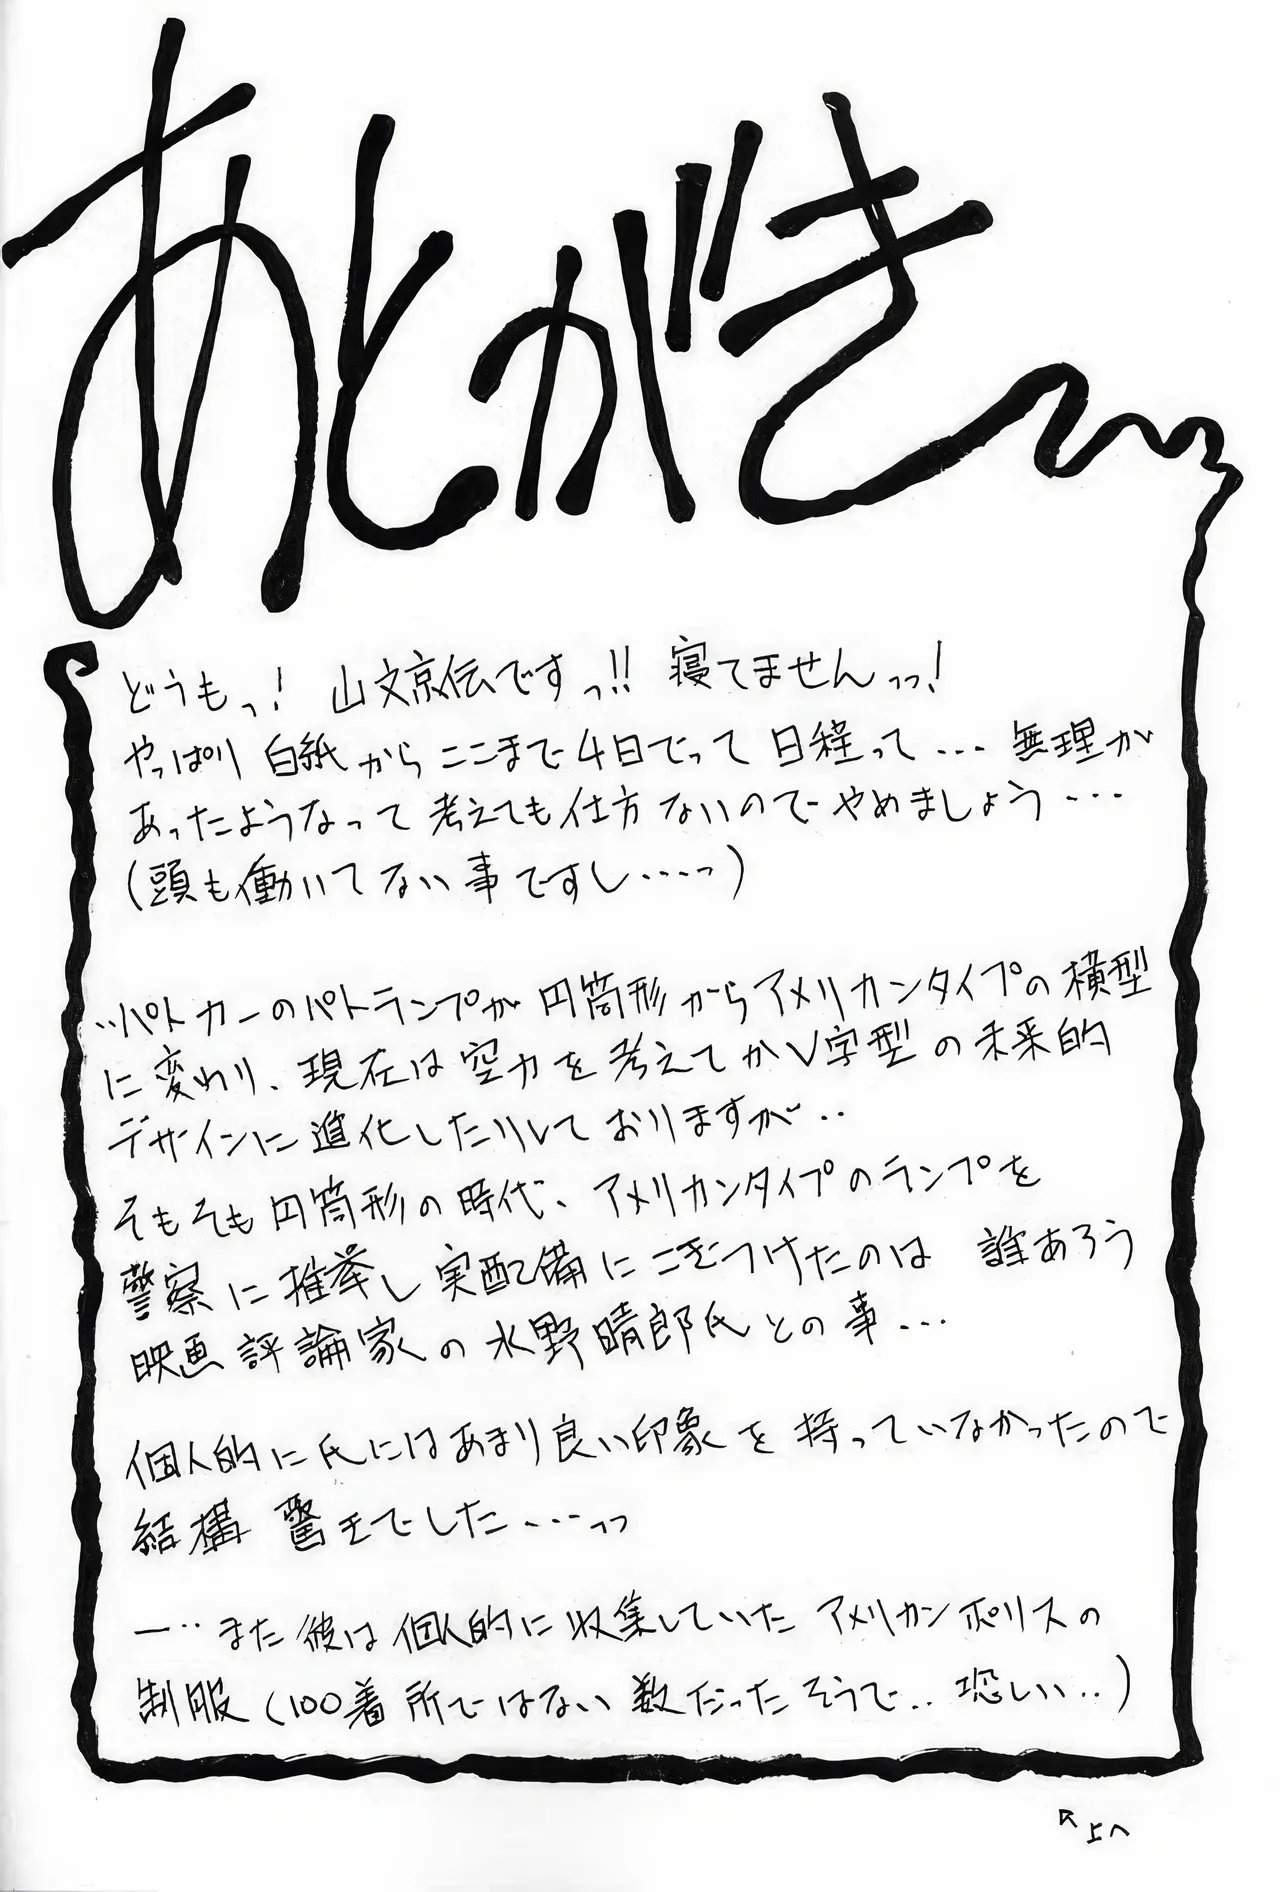 あとがき
どうもっ! 山文京伝ですっ!! 寝てませんっっ!
やっぱり 白紙からここまで4日でって 日程って… 無理が
あったようなって 考えても仕方ないのでやめましょう…
(頭も働いてない事ですし……っ)
‥パトカーのパトランプが 円筒形からアメリカンタイプの横型
に変わり、現在は 空力を考えてかV字型の未来的
デザインに進化したりしておりますが‥
そもそも円筒形の時代、アメリカンタイプのランプを
警察に推挙し実配備にこぎつけたのは 誰あろう
映画評論家の水野晴郎氏との事…
個人的に氏にはあまり良い印象を持っていなかったので
結構 驚きでした…っっ
ー‥また彼は個人的に収集していたアメリカンポリスの
制服(100着所ではない数だったそうで‥恐しい‥)
↖上へ